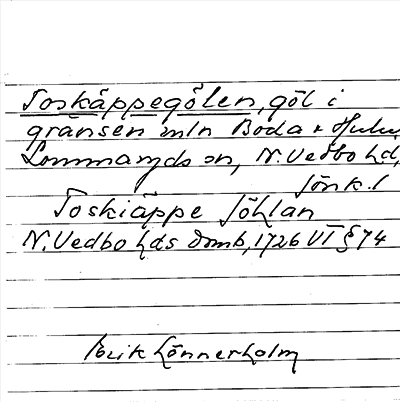 Toskäppegölen, göl i
gränsen mln Boda o Hulu,
Lommaryds sn, N. Vedbo hd,
Jönk. l
Toskiäppe Jöhlan
N. Vedbo hds domb, 1726 VT § 74
Erik Lönnerholm